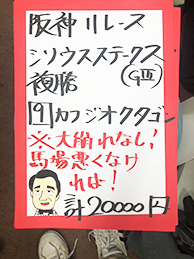 阪神11レース
シリウスステークス
(GⅢ)
複勝
9 カフジオクタゴン
※大崩れない!
馬場悪くなけ
れば!
計20000円